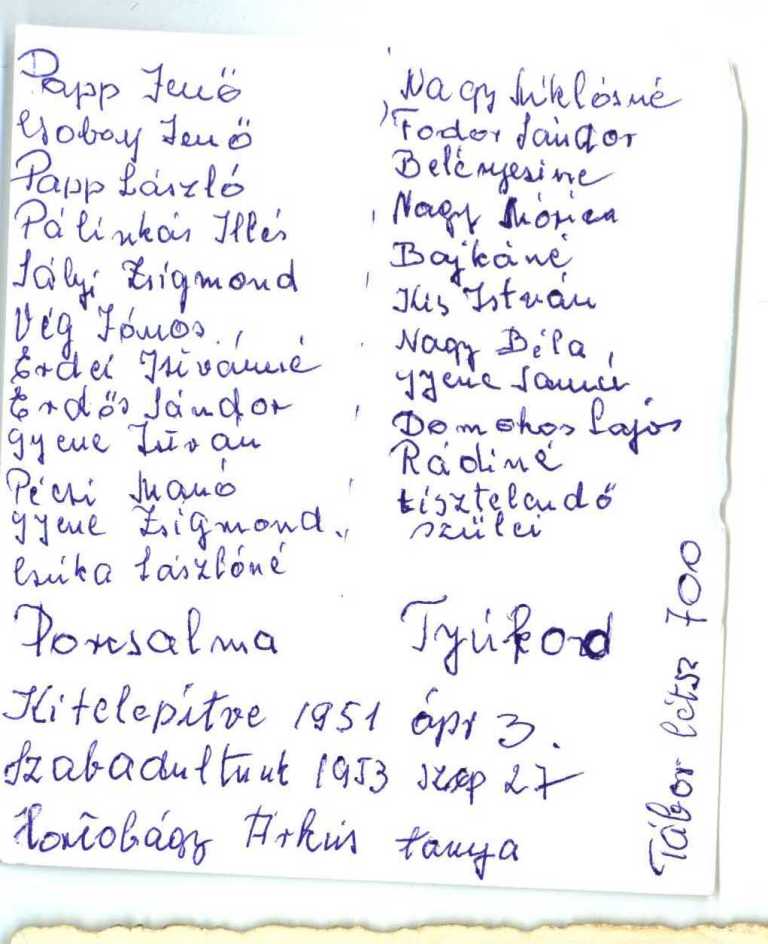 Papp Jenő
Csobay Jenő
Papp László
Pálinkás Illés
Sályi Zsigmond
Vég János
Erdei Istvánné
Erdős Sándor
Gyene István
Pécsi Manó
Gyene Zsigmond
Csuka Lászlóné
Porcsalma
Nagy Miklósné
Fodor Sándor
Belényesine
Nagy Móricz
Bajkáné
Kis István
Nagy Béla
Gyene
Domokos Lajos
Rádiné
tisztelendő
szülei
Tyúkod
Kitelepitve 1951 ápr 3.
Szabadultunk 1953 szep 27
Hortobágy Árkus tanya
Tábor létsz 700